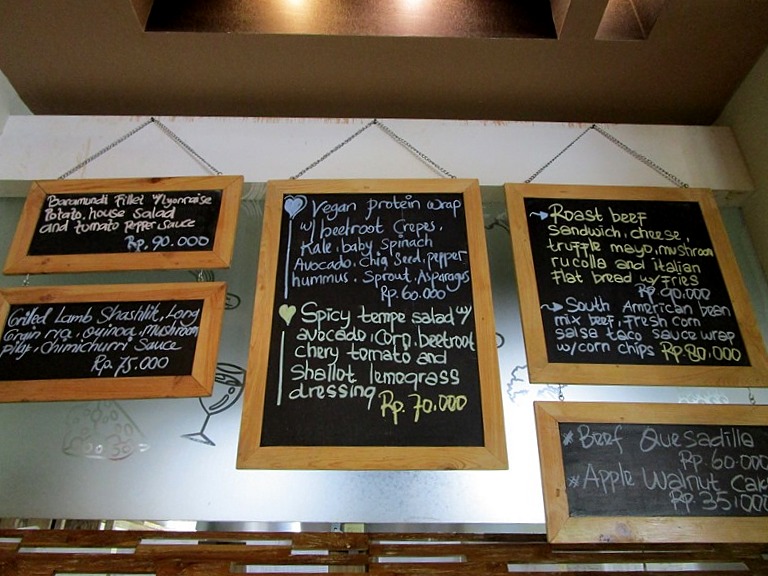 Baramundi Fillet "Nyonnaise
Potato, house salad
and tomato Pepper sauce
Rp. 90.000
Grilled Lamb Shashlik, Long
Grain rice, quinoa, mushroom
pilaf, chimichurri Sauce
Rp. 75.000
Vegan protein wrap
w/ beetroot Crepes,
Kale, baby Spinach
Avocado, Chia Seed, pepper
hummus, Sprout, Asparagus
Rp. 60.000
Spicy tempe salad w/
avocado, Corn, beetroot
chery tomato and
Shallot lemograss
dressing Rp. 70.000
Roast beef
Sandwich, cheese,
truffle mayo, mushroom
rucolla and italian
flat bread w/ Fries
Rp 90.000
South American bean
mix beef, fresh corn
salsa taco sauce wrap
w/corn chips Rp.80.000
* Beef Quesadilla
Rp 60.000
* Apple Walnut Cak
Rp 35,000